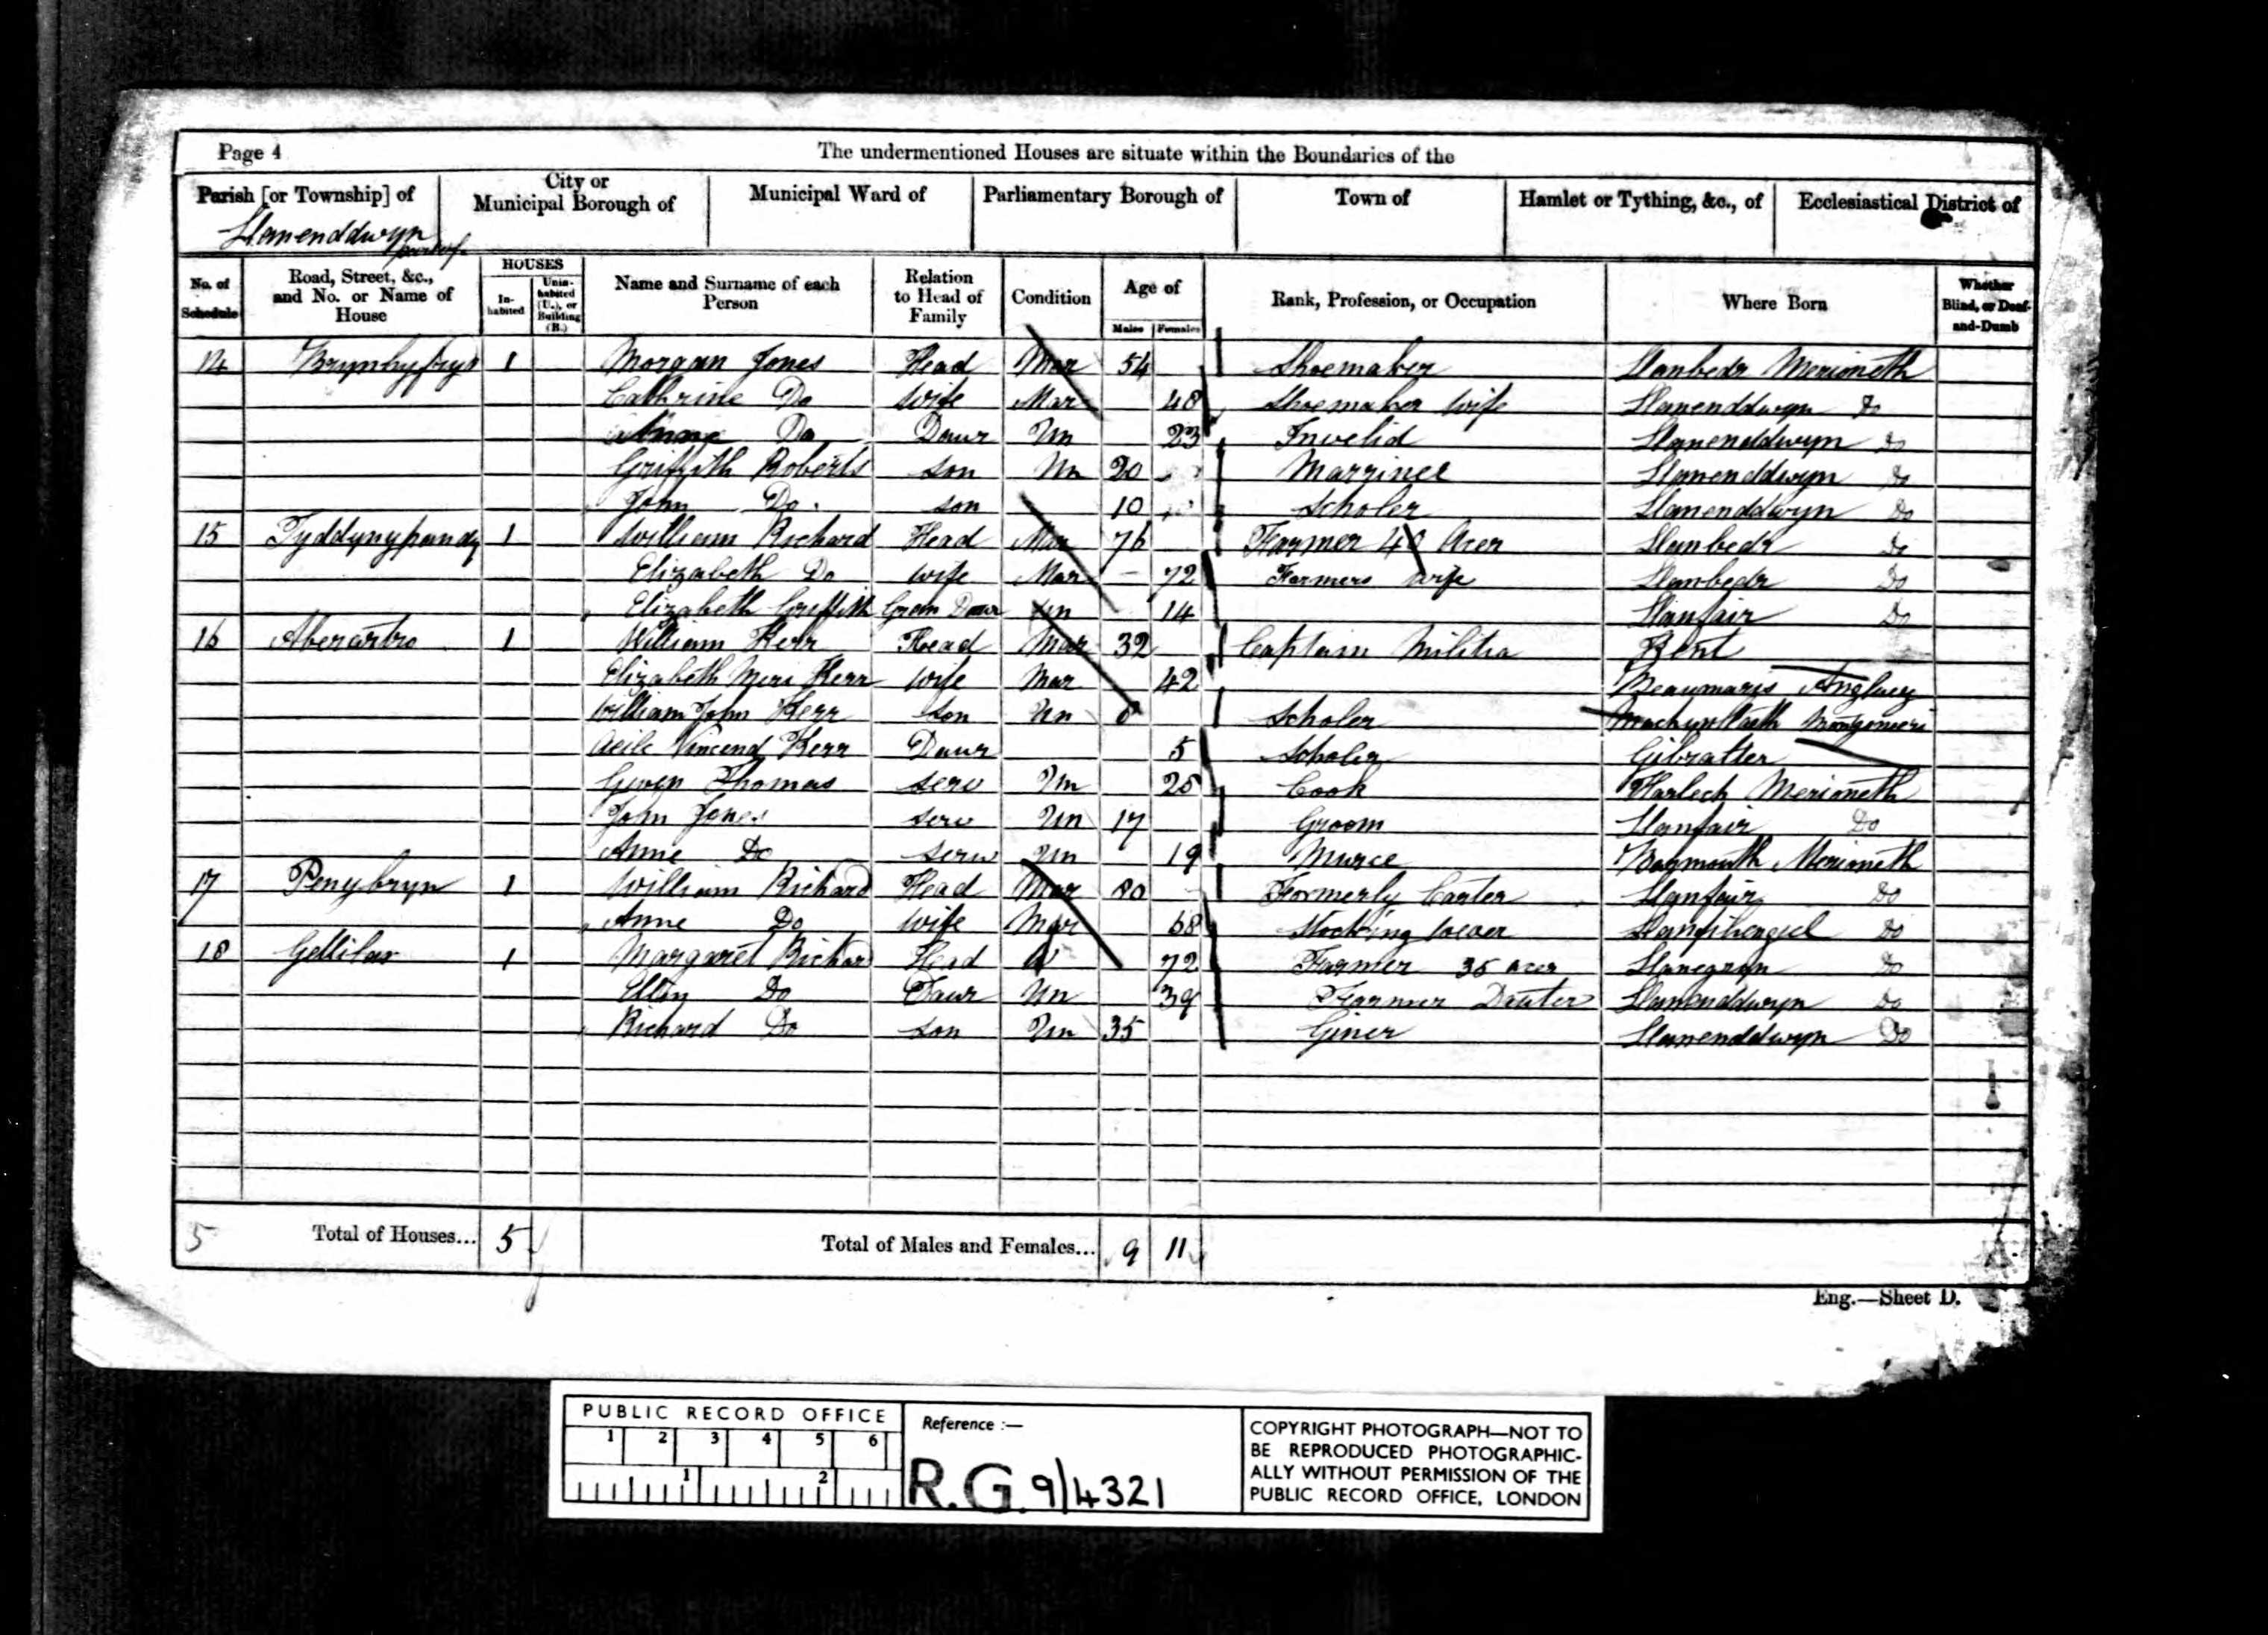 Page 4 The undermentioned Houses are situate within the Boundaries of the
Parish [or Township] of City or Municipal Borough of Municipal Ward of Parliamentary Borough of Town of Hamlet or Tything, &c., of Ecclesiastical District of
Llanenddwyn part of
No. of Schedule Road, Street, &c., and No. or Name of House HOUSES Inhabited Uninhabited (U.), or Building (B.) Name and Surname of each Person Relation to Head of Family Condition Age of Males Females Rank, Profession, or Occupation Where Born Whether Blind, or Deaf-and-Dumb
14 Brynhyfryd 1 Morgan Jones Head Mar 54 Shoemaker Llanbedr Merioneth
Cathrine Do wife Mar 48 Shoemaker wife Llanenddwyn Do
Anne Do Daur Un 23 Invelid Llanenddwyn Do
Griffith Roberts son Un 20 Marrinee Llanenddwyn Do
John Do son 10 Scholer Llanenddwyn Do
15 Tyddynypandy 1 William Richard Head Mar 76 Farmer 40 Acer Llanbedr Do
Elizabeth Do wife Mar 72 Farmers wife Llanbedr Do
Elizabeth Griffith Gran Daur Un 14 Llanfair Do
16 Aberartro 1 William Kerr Head Mar 32 Captain Militia Kent
Elizabeth Kerr wife Mar 42 Beaumaris Anglsey
William John Kerr son Un 8 Scholer Machynllaeth
Vincend Kerr Daur 5 Scholer Gibralter
Gwen Thomas serv Un 25 Cook Harlech Merioneth
John Jones serv Un 17 Groom Llanfair Do
Anne Do serv Un 19 Nurce Barmouth Merioneth
17 Penybryn 1 William Richard Head Mar 80 Formerly Carter Llanfair Do
Anne Do wife Mar 68 Stocking Do
18 1 Margaret Richard Head W 72 Farmer 35 Acer Llanegryn Do
Ellin Do Daur Un 39 Farmer Dauter Llanenddwyn Do
Richard Do son Un 35 Giner Llanenddwyn Do
5 Total of Houses... 5 Total of Males and Females... 9 11
Eng.—Sheet D.
PUBLIC RECORD OFFICE
1 2 3 4 5 6
1 2
Reference :—
R.G. 9/4321
COPYRIGHT PHOTOGRAPH—NOT TO
BE REPRODUCED PHOTOGRAPHIC-
ALLY WITHOUT PERMISSION OF THE
PUBLIC RECORD OFFICE, LONDON